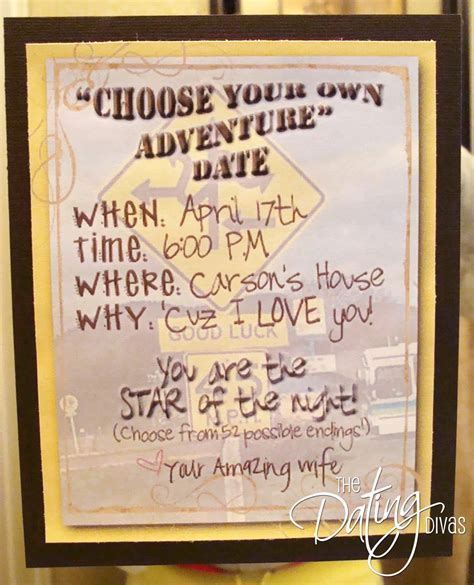 "CHOOSE YOUR OWN
ADVENTURE"
DATE
WHEN: April 17th
TIME: 6:00 P.M
WHERE: Carson's House
WHY: 'Cuz I LOVE you!
GOOD LUCK
You are the
STAR of the night!
(Choose from 52 possible endings!)
Your Amazing wife
THE
Dating
DIVAS